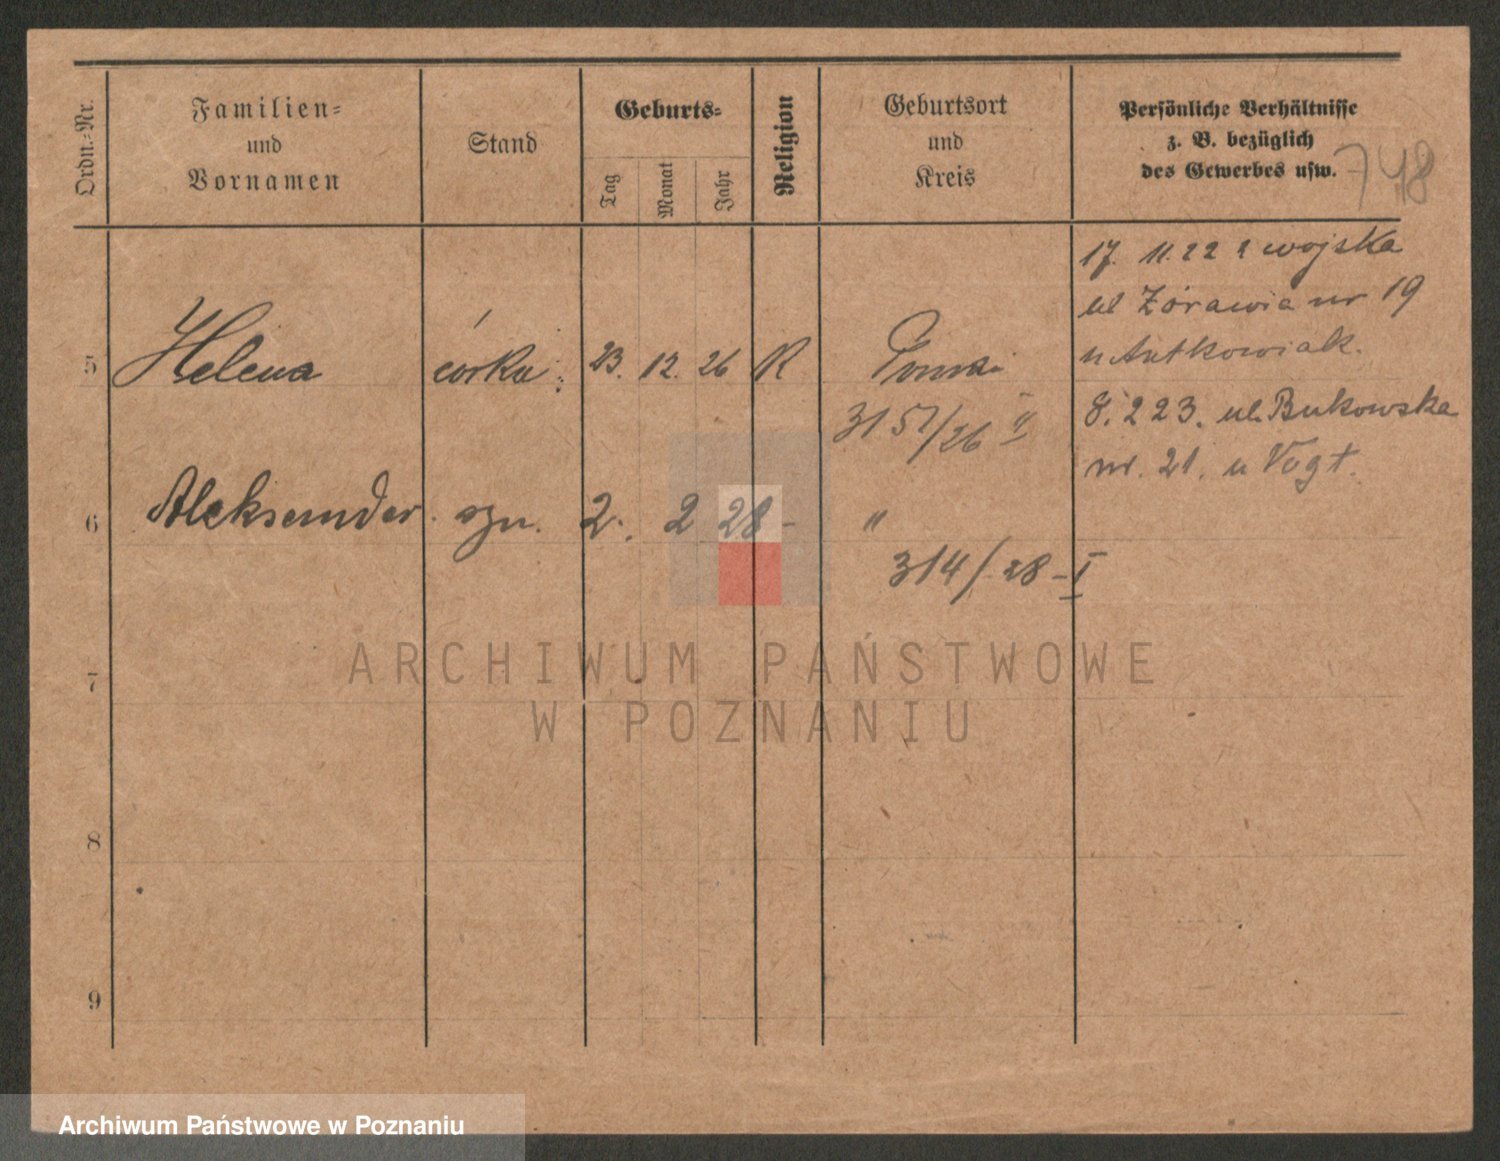 Ordn.-Nr.
Familien-
und
Vornamen
Stand
Geburts-
Tag
Monat
Jahr
Religion
Geburtsort
und
Kreis
Persönliche Verhältnisse
z. B. bezüglich
des Gewerbes usw.
748
17. 11. 22 z wojska
ul Żórawia nr 19
u Antkowiak.
5 Helena córka 23. 12. 26 R
3151/26 II
8. 2 23. ul. Bukowska
nr. 21. u Vogt.
6 Aleksander syn. 2. 2 28 - "
314/28-I
7
8
9
ARCHIWUM PAŃSTWOWE
W POZNANIU
Archiwum Państwowe w Poznaniu